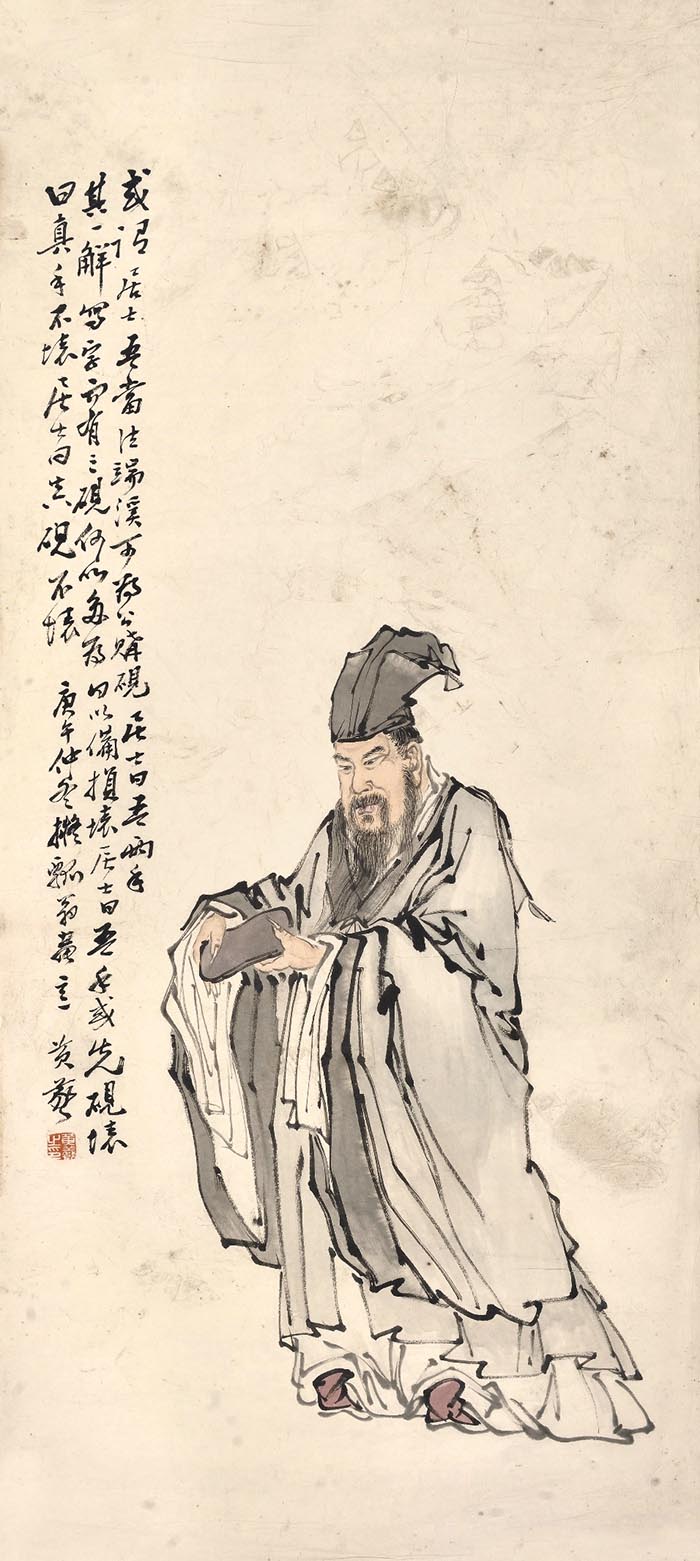 或謂居士吾當往端溪可為公購硯居士曰吾兩手
其一解寫字而有三硯何以多為曰以備損壞居士曰吾手或先硯壞
曰真手不壞居士曰真硯不壞 庚午仲冬擬瓢翁畫意 黃羲